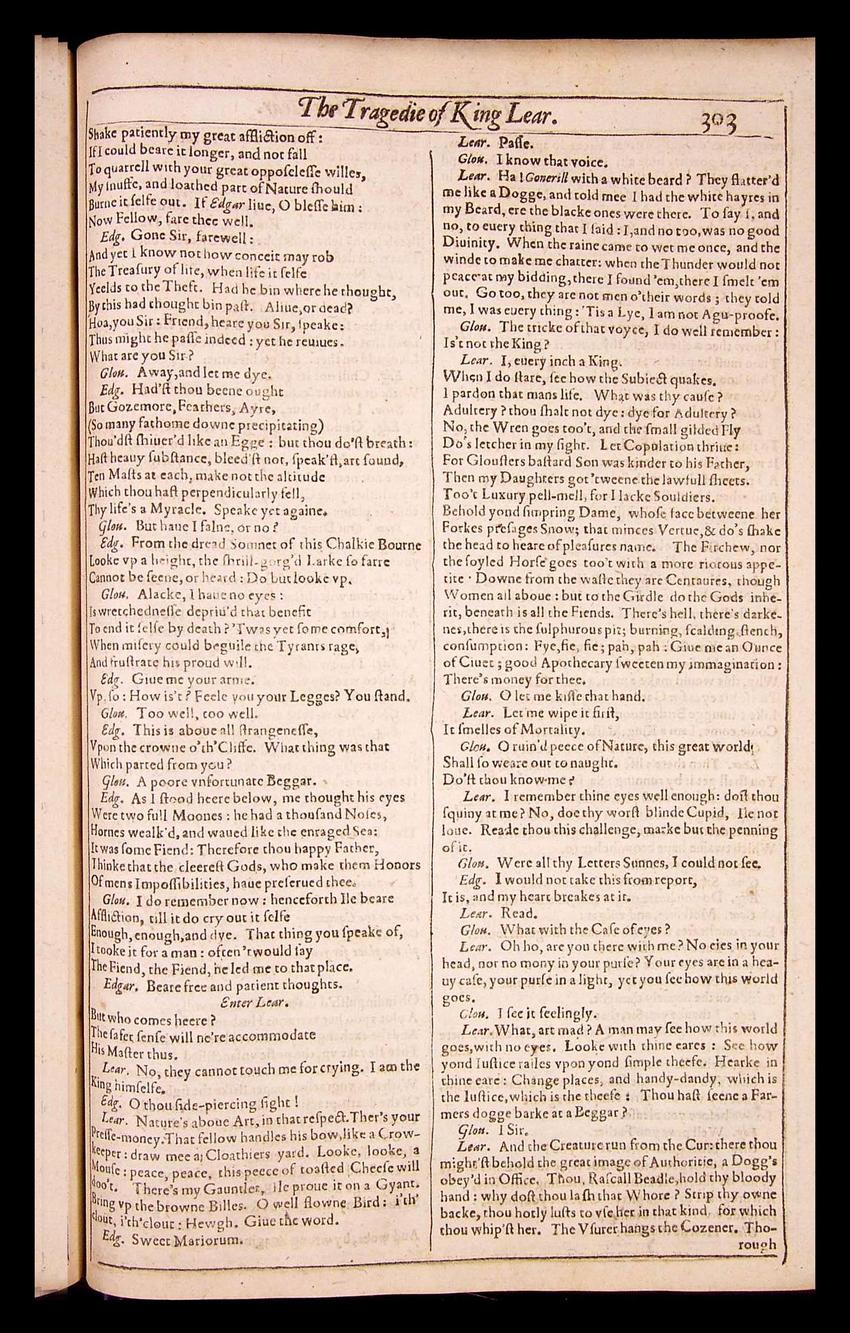 The Tragedie of King Lear. 303
Shake patiently my great affliction off:
If I could beare it longer, and not fall
To quarrell with your great opposelesse willes,
My snuffe, and loathed part of Nature should
Burne it selfe out. If Edgar liue, O blesse him:
Now Fellow, fare thee well.
Edg. Gone Sir, farewell:
And yet I know not how conceit may rob
The Treasury of life, when life it selfe
Yeelds to the Theft. Had he bin where he thought,
By this had thought bin past. Aliue, or dead?
Hoa, you Sir: Friend, heare you Sir, speake:
Thus might he passe indeed: yet he reuiues.
What are you Sir?
Glou. Away, and let me dye.
Edg. Had'st thou beene ought
But Gozemore, Feathers, Ayre,
(So many fathome downe precipitating)
Thou'dst shiuer'd like an Egge: but thou do'st breath:
Hast heauy substance, bleed'st not, speak'st, art sound,
Ten Masts at each, make not the altitude
Which thou hast perpendicularly fell,
Thy life's a Myracle. Speake yet againe.
Glou. But haue I falne, or no?
Edg. From the dread Somnet of this Chalkie Bourne
Looke vp a height, the shrill-gorg'd Larke so farre
Cannot be seene, or heard: Do but looke vp.
Glou. Alacke, I haue no eyes:
Is wretchednesse depriu'd that benefit
To end it selfe by death? 'Twas yet some comfort,
When misery could beguile the Tyrants rage,
And frustrate his proud will.
Edg. Giue me your arme.
Vp, so: How is't? Feele you your Legges? You stand.
Glou. Too well, too well.
Edg. This is aboue all strangenesse,
Vpon the crowne o'th'Cliffe. What thing was that
Which parted from you?
Glou. A poore vnfortunate Beggar.
Edg. As I stood heere below, me thought his eyes
Were two full Moones: he had a thousand Noses,
Hornes wealk'd, and waued like the enraged Sea:
It was some Fiend: Therefore thou happy Father,
Thinke that the cleerest Gods, who make them Honors
Of mens Impossibilities, haue preserued thee.
Glou. I do remember now: henceforth Ile beare
Affliction, till it do cry out it selfe
Enough, enough, and dye. That thing you speake of,
I tooke it for a man: often 'twould say
The Fiend, the Fiend, he led me to that place.
Edgar. Beare free and patient thoughts.
Enter Lear.
But who comes heere?
The safer sense will ne're accommodate
His Master thus.
Lear. No, they cannot touch me for crying. I am the
King himselfe.
Edg. O thou side-piercing sight!
Lear. Nature's aboue Art, in that respect. Ther's your
Presse-money. That fellow handles his bow, like a Crow-
keeper: draw mee a Cloathiers yard. Looke, looke, a
Mouse: peace, peace, this peece of toasted Cheese will
doo't. There's my Gauntlet, Ile proue it on a Gyant.
Bring vp the browne Billes. O well flowne Bird: i'th'
clout, i'th'clout: Hewgh. Giue the word.
Edg. Sweet Mariorum.
Lear. Passe.
Glou. I know that voice.
Lear. Ha! Gonerill with a white beard? They flatter'd
me like a Dogge, and told mee I had the white hayres in
my Beard, ere the blacke ones were there. To say I, and
no, to euery thing that I said: I, and no too, was no good
Diuinity. When the raine came to wet me once, and the
winde to make me chatter: when the Thunder would not
peace at my bidding, there I found 'em, there I smelt 'em
out. Go too, they are not men o'their words; they told
me, I was euery thing: 'Tis a Lye, I am not Agu-proofe.
Glou. The tricke of that voyce, I do well remember:
Is't not the King?
Lear. I, euery inch a King.
When I do stare, see how the Subiect quakes.
I pardon that mans life. What was thy cause?
Adultery? thou shalt not dye: dye for Adultery?
No, the Wren goes too't, and the small gilded Fly
Do's letcher in my sight. Let Copulation thriue:
For Glousters bastard Son was kinder to his Father,
Then my Daughters got 'tweene the lawfull sheets.
Too't Luxury pell-mell, for I lacke Souldiers.
Behold yond simpring Dame, whose face betweene her
Forkes presages Snow; that minces Vertue, & do's shake
the head to heare of pleasures name. The Fitchew, nor
the soyled Horse goes too't with a more riotous appe-
tite: Downe from the waste they are Centaures, though
Women all aboue: but to the Girdle do the Gods inhe-
rit, beneath is all the Fiends. There's hell, there's darke-
nes, there is the sulphurous pit; burning, scalding, stench,
consumption: Fye, fie, fie; pah, pah: Giue me an Ounce
of Ciuet; good Apothecary sweeten my immagination:
There's money for thee.
Glou. O let me kisse that hand.
Lear. Let me wipe it first,
It smelles of Mortality.
Glou. O ruin'd peece of Nature, this great world
Shall so weare out to naught.
Do'st thou know me?
Lear. I remember thine eyes well enough: dost thou
squiny at me? No, doe thy worst blinde Cupid, Ile not
loue. Reade thou this challenge, marke but the penning
of it.
Glou. Were all thy Letters Sunnes, I could not see.
Edg. I would not take this from report,
It is, and my heart breakes at it.
Lear. Read.
Glou. What with the Case of eyes?
Lear. Oh ho, are you there with me? No eies in your
head, nor no mony in your purse? Your eyes are in a hea-
uy case, your purse in a light, yet you see how this world
goes.
Glou. I see it feelingly.
Lear. What, art mad? A man may see how this world
goes, with no eyes. Looke with thine eares: See how
yond Iustice railes vpon yond simple theefe. Hearke in
thine eare: Change places, and handy-dandy, which is
the Iustice, which is the theefe: Thou hast seene a Far-
mers dogge barke at a Beggar?
Glou. I Sir.
Lear. And the Creature run from the Cur: there thou
might'st behold the great image of Authoritie, a Dogg's
obey'd in Office. Thou, Rascall Beadle, hold thy bloody
hand: why dost thou lash that Whore? Strip thy owne
backe, thou hotly lusts to vse her in that kind, for which
thou whip'st her. The Vsurer hangs the Cozener. Tho-
rough